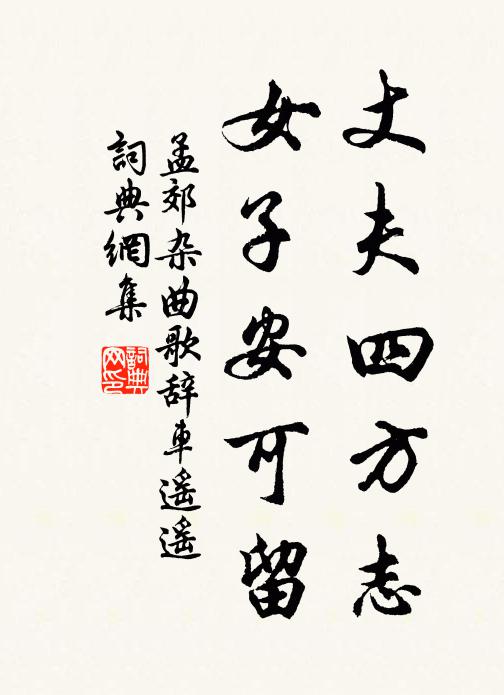 丈夫四方志
女子安可留
孟郊杂曲歌辞車遥遥
詞典網集
詞典網印